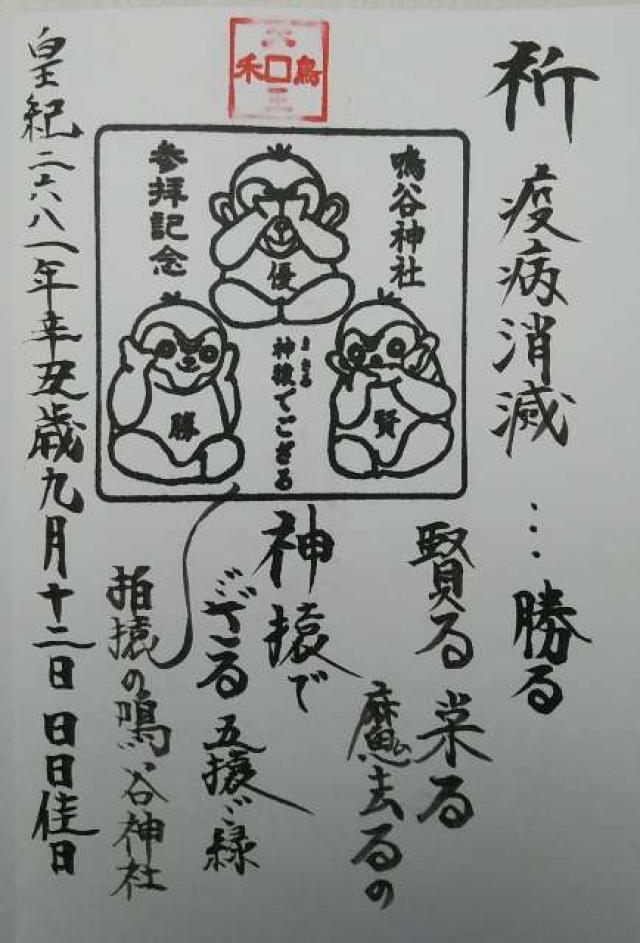 祈 疫病消滅…勝る
賢る 栄る
魔去るの
神猿で
ござる 五猿ご縁
拍猿の鳴谷神社
皇紀二六八一年辛丑歳九月十二日 日日佳日
鳴谷神社
参拝記念
優
賢
勝
まさる
神猿でござる